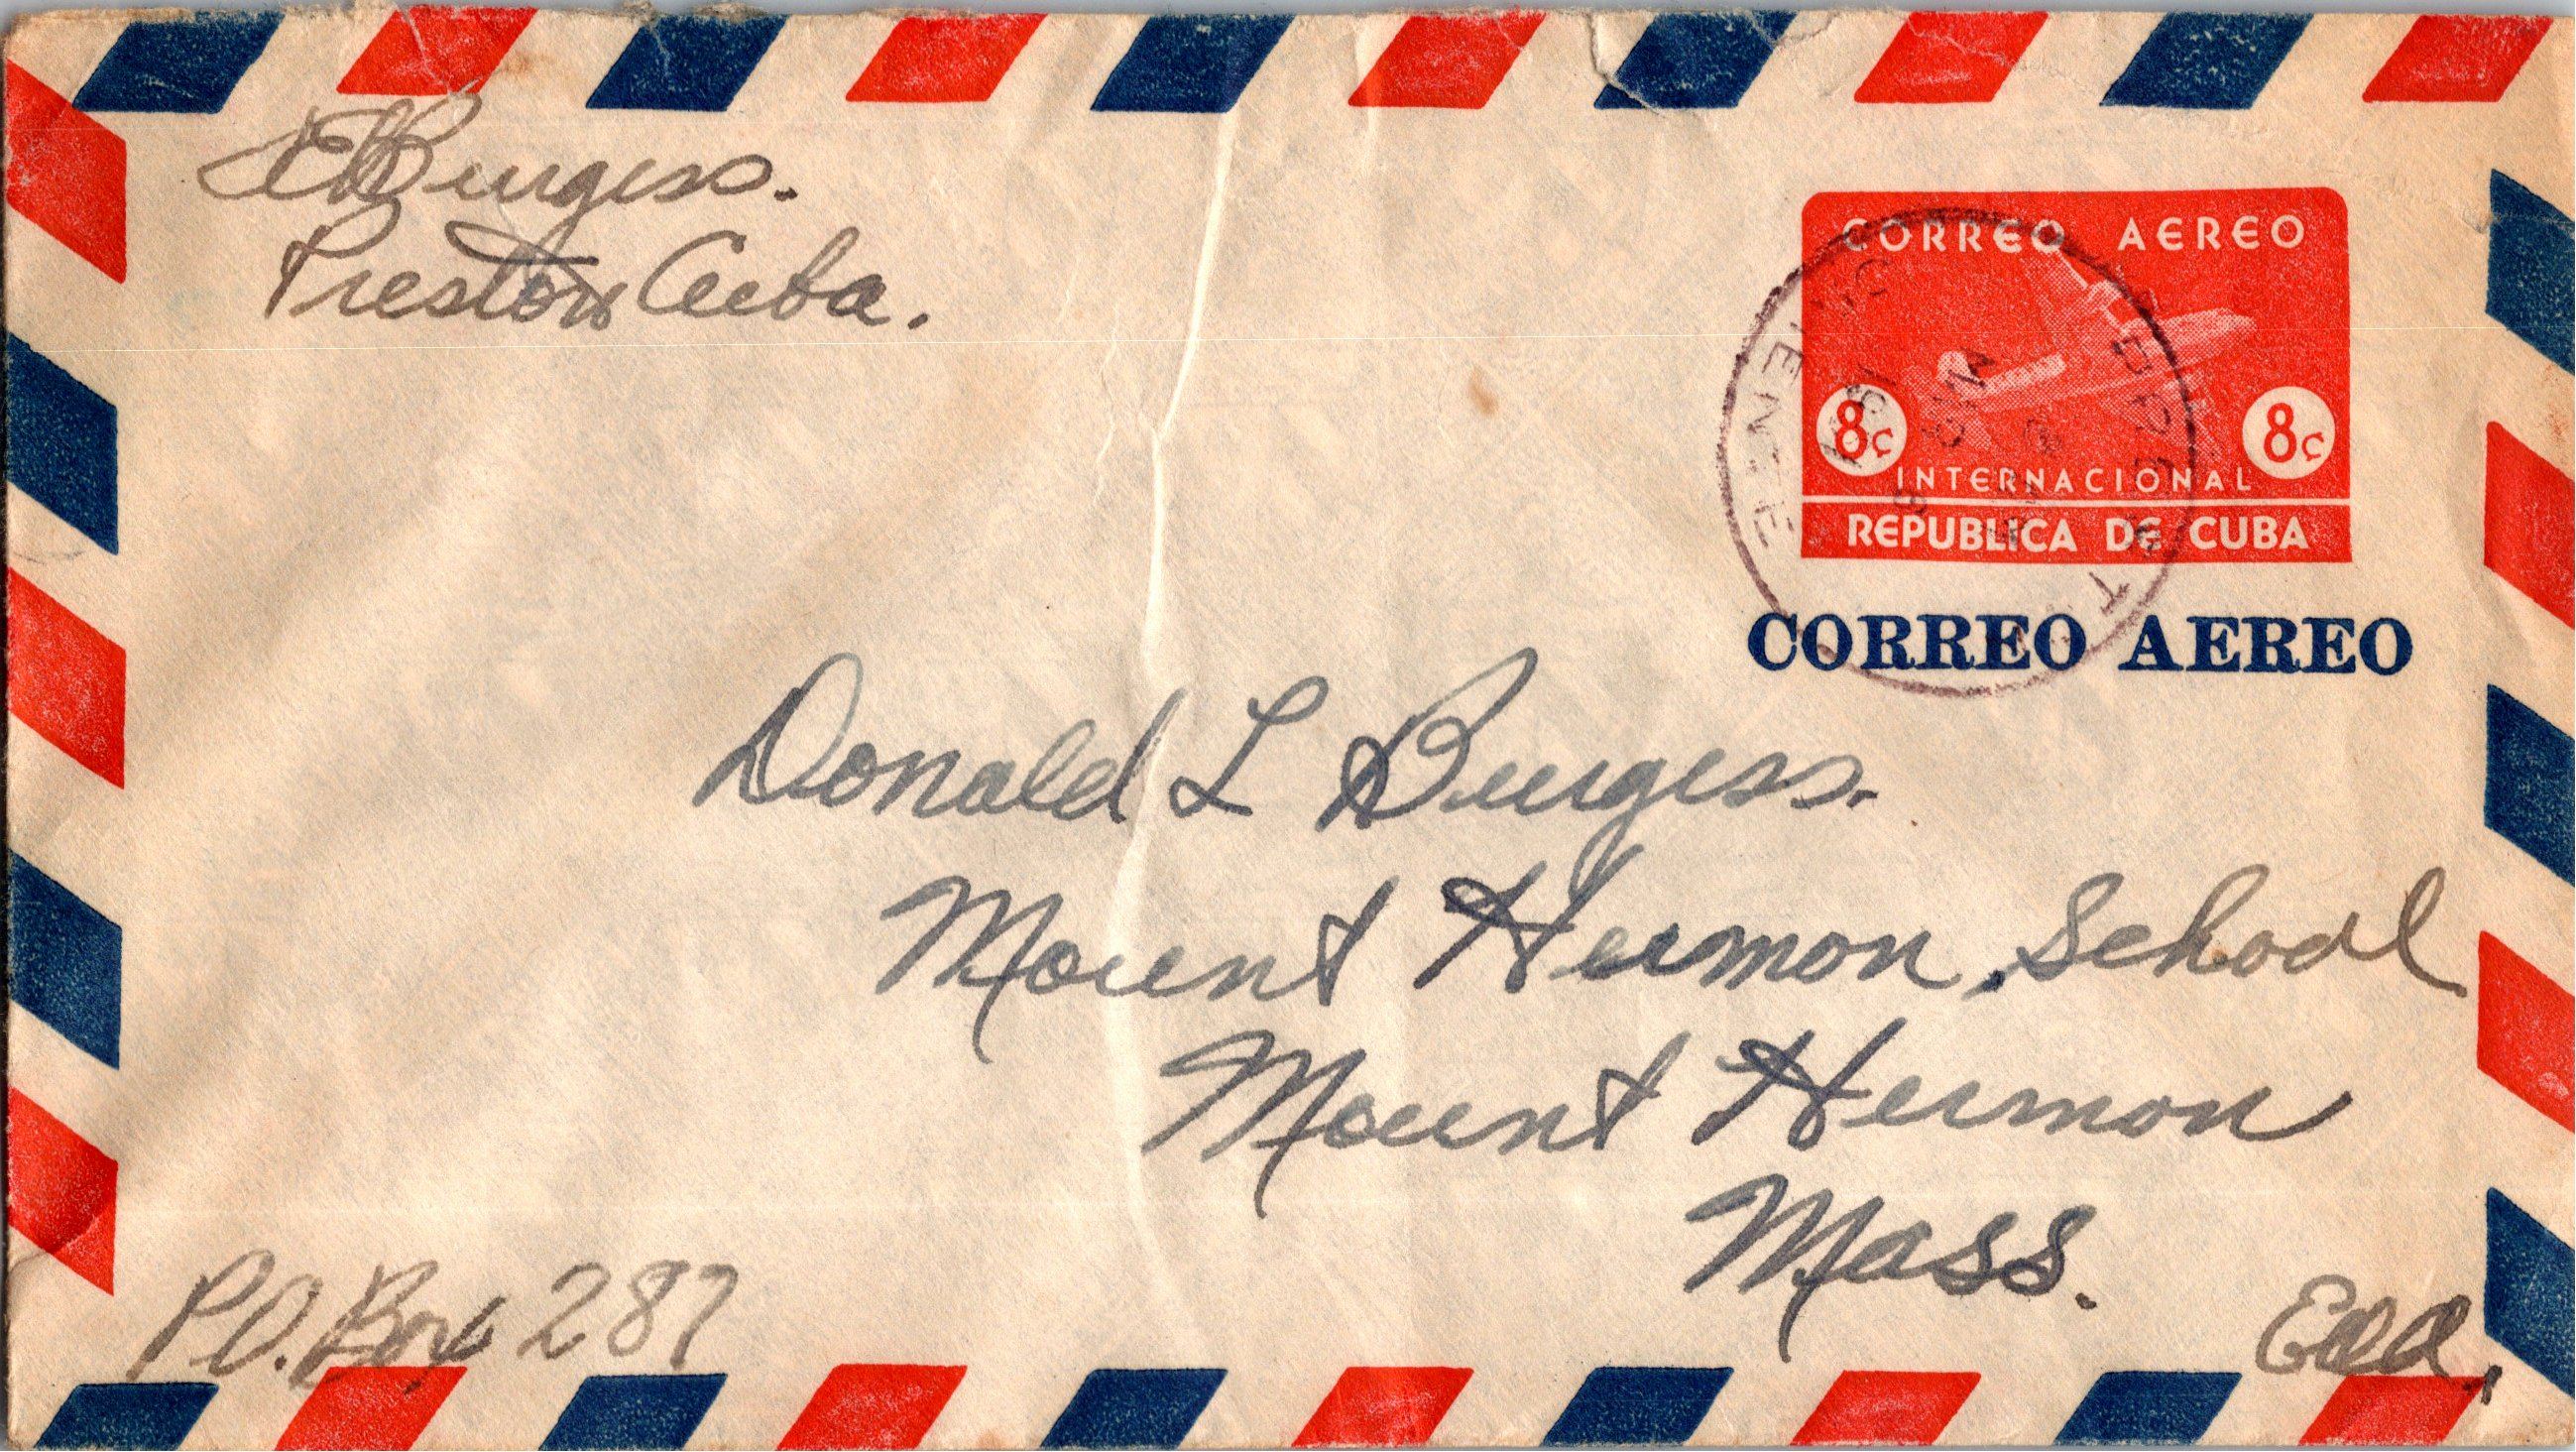 E Burgess.
Preston Cuba.
CORREO AEREO
8c 8c
INTERNACIONAL
REPUBLICA DE CUBA
CORREO AEREO
Donald L Burgess.
Mount Hermon, School
Mount Hermon
Mass.
P.O. Box 287